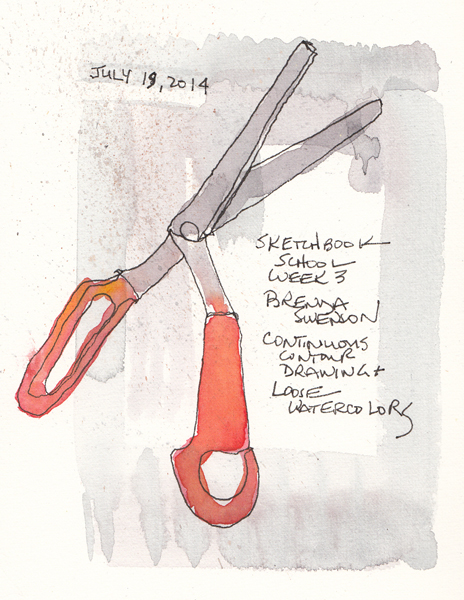 JULY 19, 2014
SKETCHBOOK
SCHOOL
WEEK 3
BRENDA
SWENSON
CONTINUOUS
CONTOUR
DRAWING +
LOOSE
WATERCOLORS